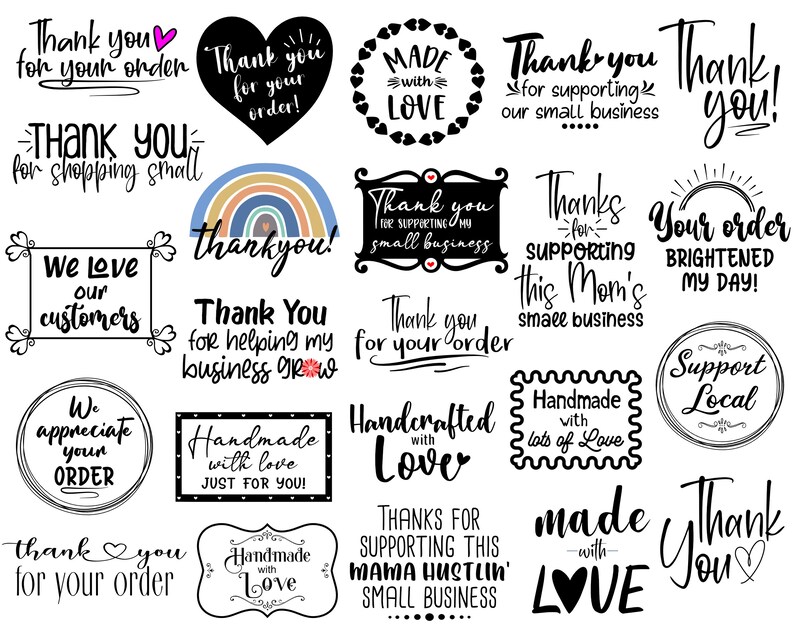 Thank you
for your order
Thank you
for your
order!
MADE
with
LOVE
Thank you
for supporting
our small business
Thank
you!
THANK YOU
for shopping small
thankyou!
Thank you
FOR SUPPORTING MY
small business
Thanks
for
supporting
this Mom's
small business
Your order
BRIGHTENED
MY DAY!
We Love
our
customers
Thank You
for helping my
business GROW
Thank you
for your order
Support
Local
We
appreciate
your
ORDER
Handmade
with love
JUST FOR YOU!
Handcrafted
with
Love
Handmade
with
lots of Love
thank you
for your order
Handmade
with
Love
THANKS FOR
SUPPORTING THIS
MAMA HUSTLIN'
SMALL BUSINESS
made
with
LOVE
Thank
you